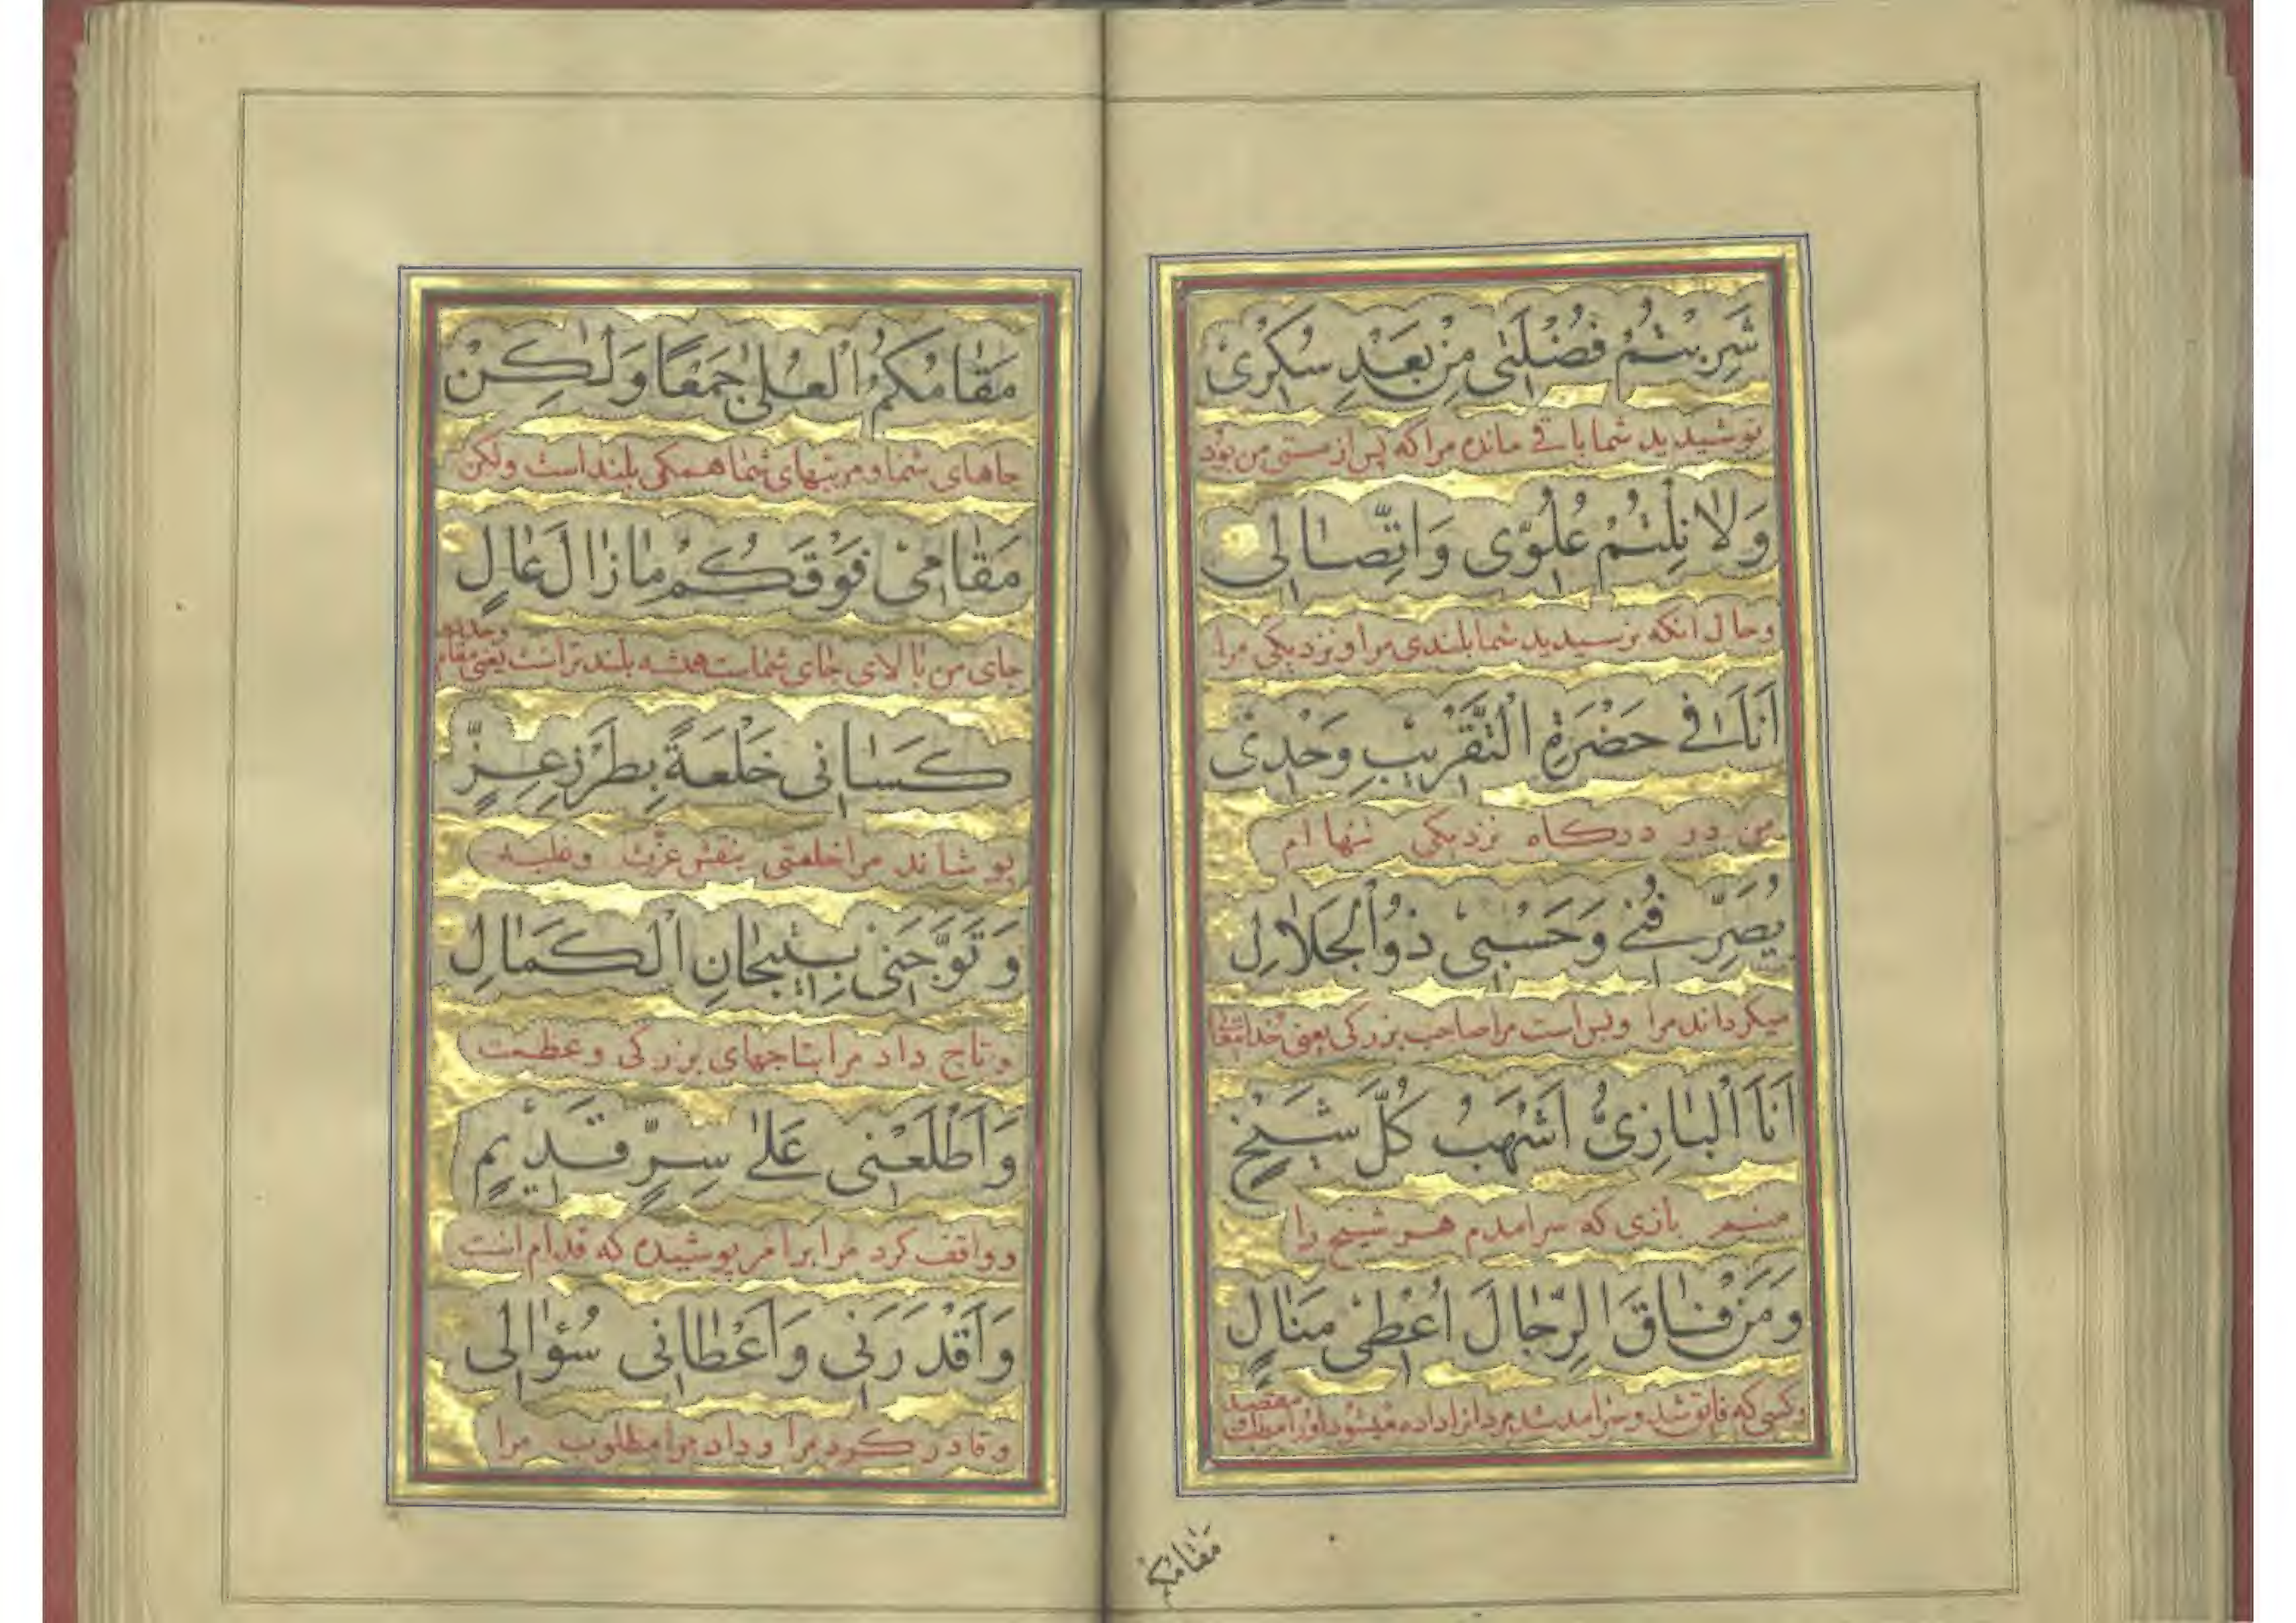 شَرِبْتُمْ فُضْلَتِی مِنْ بَعْدِ سُکْرِیْ
نوشیدید شما باقی مانده مرا که پس از مستی من بود
وَلَا نِلْتُمْ عُلُوِّی وَاتِّصَالِی
وحال انکه نرسیدید شما بلندی مرا ونزدیکی مرا
اَنَا فِی حَضْرَةِ التَّقْرِیْبِ وَحْدِیْ
من در درکاه نزدیکی تنها ام
یُصَرِّفُنِی وَحَسْبِیْ ذُو الْجَلَالِ
میکرداند مرا وبس است مرا صاحب بزرکی یعنی خدایتعالی
اَنَا الْبَازِیُّ اَشْهَبُ کُلَّ شَیْخٍ
منم بازی که سرامدم هر شیخ را
وَمَنْ فَاقَ الرِّجَالَ اُعْطِیْ مَنَالٍ
وکسی که فایق شد وسرامد شد مردانرا داده میشود اورا مطلب مقصد
مقامکم
مَقَامُکُمُ الْعُلٰی جَمْعًا وَلٰکِنْ
جاهای شما ومرتبهای شما همکی بلند است ولکن
مَقَامِیْ فَوْقَکُمْ مَا زَالَ عَالٍ
جای من بالای جای شماست همشه بلند تر است یعنی مقام
کَسَانِی خَلْعَةً بِطَرْزِ عِزٍّ
پوشاند مرا خلعتی بنقش عزت وغلبه
وَتَوَّجَنِیْ بِتِیْجَانِ الْکَمَالِ
وتاج داد مرا بتاجهای بزرکی وعظمت
وَاَطْلَعَنِی عَلٰی سِرٍّ قَدِیْمٍ
وواقف کرد مرا برامر پوشیده که قدام است
وَاَقْدَرَنِی وَاَعْطَانِی سُؤَالِی
وقادر کرد مرا وداد مرا مطلوب مرا